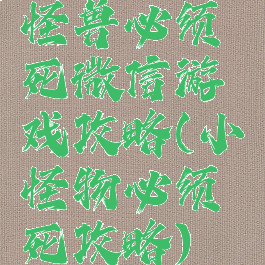 怪兽必须
死微信游
戏攻略(小
怪物必须
死攻略)